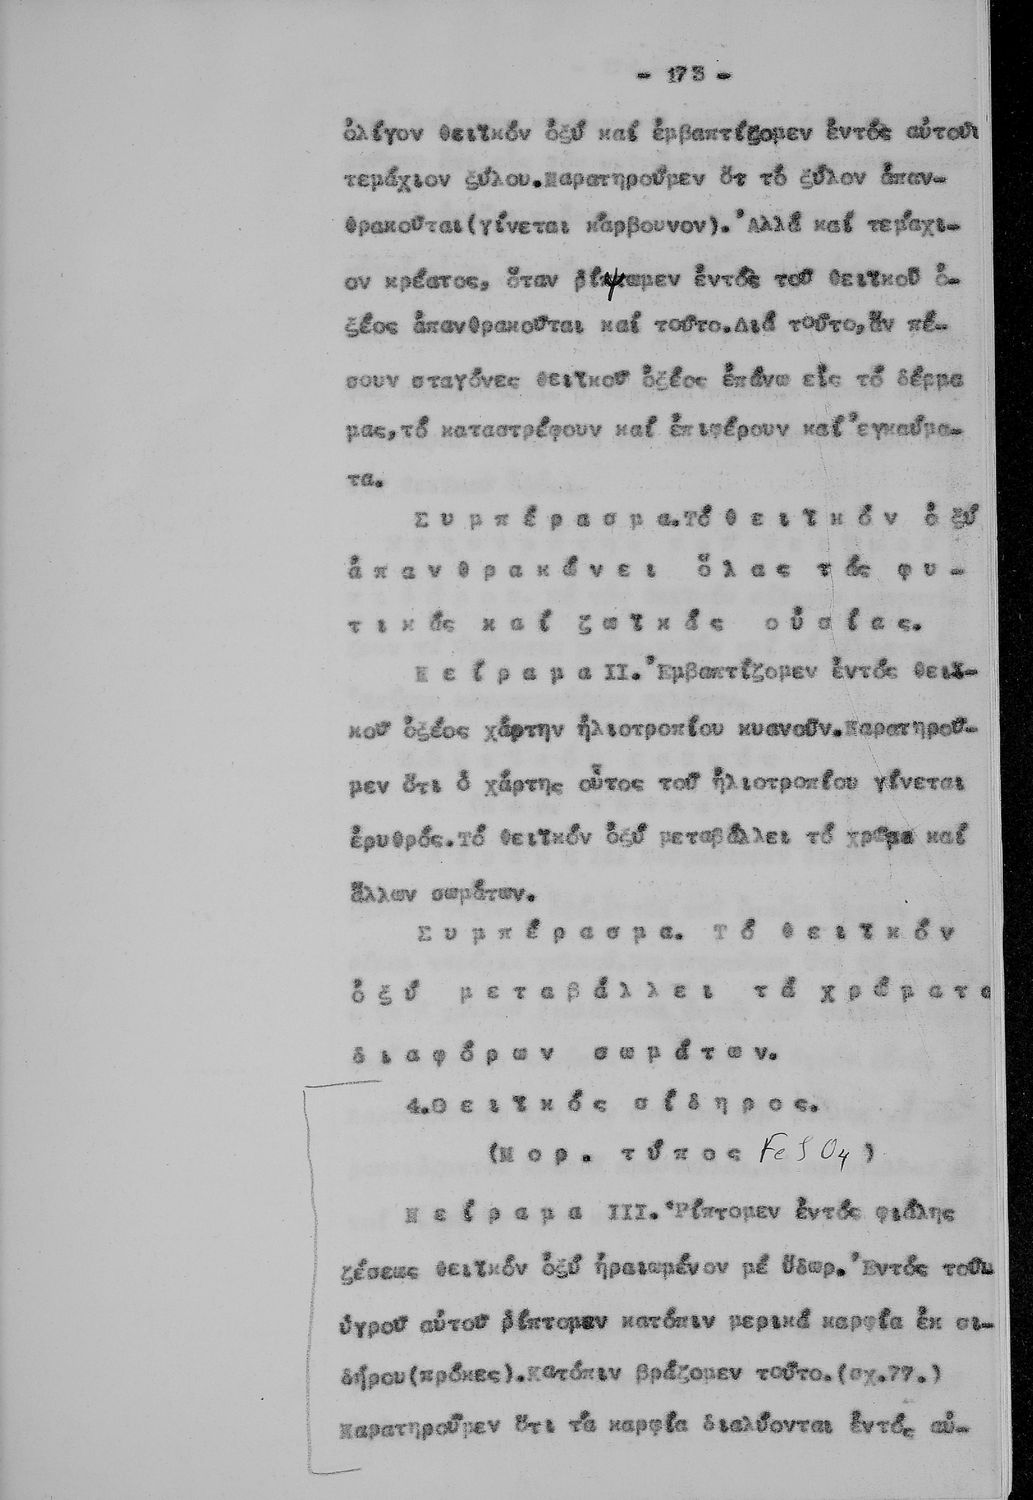 - 173 -
ὀλίγον θειϊκόν ὀξύ καί ἐμβαπτίζομεν ἐντός αὐτοῦ
τεμάχιον ξύλου.Παρατηροῦμεν ὅτ τό ξύλον ἀπαν-
θρακοῦται(γίνεται κάρβουνον).Ἀλλά καί τεμάχι-
ον κρέατος, ὅταν ῥίψωμεν ἐντός τοῦ θειϊκοῦ ὀ-
ξέος ἀπανθρακοῦται καί τοῦτο.Διά τοῦτο,ἄν πέ-
σουν σταγόνες θειϊκοῦ ὀξέος ἐπάνω εἰς τό δέρμα
μας,τό καταστρέφουν καί ἐπιφέρουν καί ἐγκαύμα-
τα.
Συμπέρασμα.Τό θειϊκόν ὀξύ
ἀπανθρακώνει ὅλας τάς φυ-
τικάς καί ζωϊκάς οὐσίας.
Πείραμα ΙΙ. Ἐμβαπτίζομεν ἐντός θειϊ-
κοῦ ὀξέος χάρτην ἡλιοτροπίου κυανοῦν.Παρατηροῦ-
μεν ὅτι ὁ χάρτης οὗτος τοῦ ἡλιοτροπίου γίνεται
ἐρυθρός.Τό θειϊκόν ὀξύ μεταβάλλει τό χρῶμα καί
ἄλλων σωμάτων.
Συμπέρασμα. Τό θειϊκόν
ὀξύ μεταβάλλει τά χρώματα
διαφόρων σωμάτων.
4.Θειϊκός σίδηρος.
(Μορ. τύπος FeSO4)
Πείραμα ΙΙΙ. Ῥίπτομεν ἐντός φιάλης
ζέσεως θειϊκόν ὀξύ ἡραιωμένον μέ ὕδωρ. Ἐντός τοῦ
ὑγροῦ αὐτοῦ ῥίπτομεν κατόπιν μερικά καρφία ἐκ σι-
δήρου(πρόκες).Κατόπιν βράζομεν τοῦτο.(σχ.77.)
Παρατηροῦμεν ὅτι τά καρφία διαλύονται ἐντός αὐ-